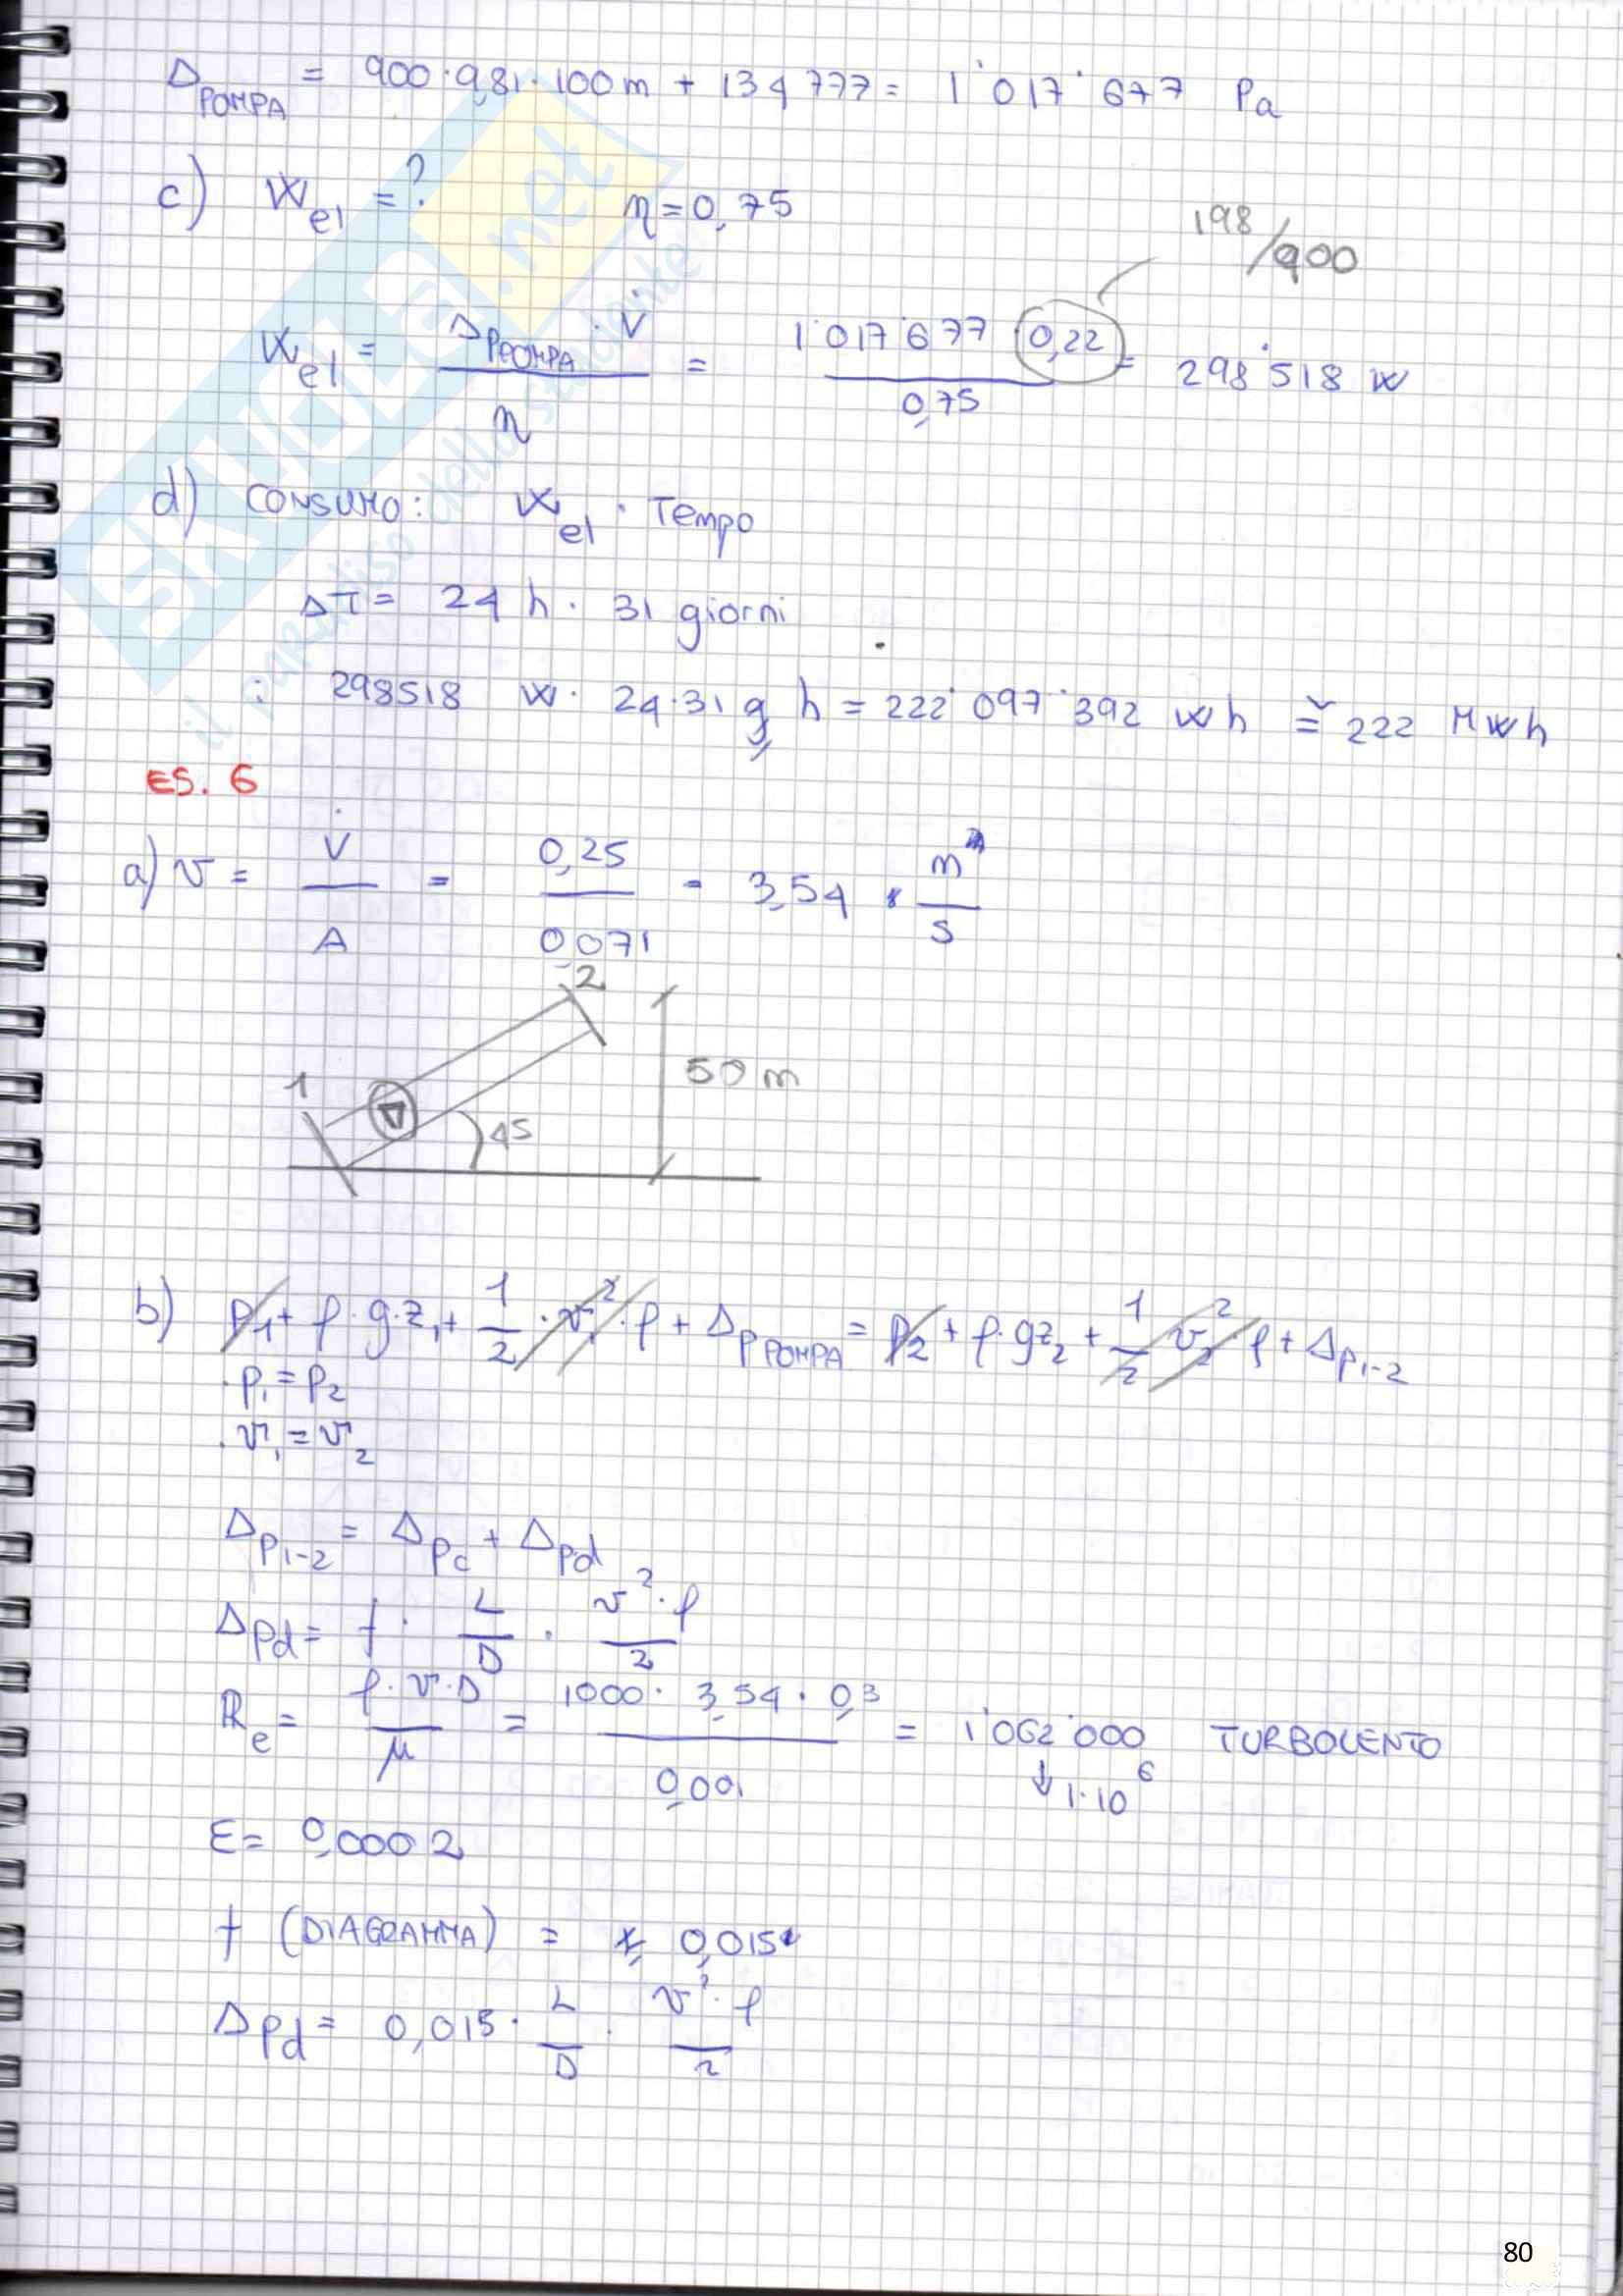 Δ_POMPA = 900·9,81·100m + 134777 = 1˙017˙677 Pa
c) Ẇ_el = ? η = 0,75
198/900
Ẇ_el = Δ_P POMPA · V̇ / η = 1˙017˙677 · 0,22 / 0,75 = 298˙518 W
d) CONSUMO: Ẇ_el · Tempo
ΔT = 24 h · 31 giorni
: 298518 W · 24·31 g h = 222˙097˙392 Wh ≅ 222 MWh
ES. 6
a) v = V̇ / A = 0,25 / 0,071 = 3,54 m / s
2
1
50 m
45
b) p1 + ρ·g·z1 + 1/2 · v1² · ρ + Δ_P POMPA = p2 + ρ·gz2 + 1/2 v2² · ρ + Δp1-2
· p1 = p2
· v1 = v2
Δp1-2 = Δpc + Δpd
Δpd = f · L/D · v²·ρ / 2
Re = ρ·v·D / μ = 1000 · 3,54 · 0,3 / 0,001 = 1˙062˙000 TURBOLENTO
↓ 1·10⁶
ε = 0,0002
f (DIAGRAMMA) = 0,015
Δpd = 0,015 · L/D · v²·ρ / 2
SKUOLA.net
il paradiso dello studente
80